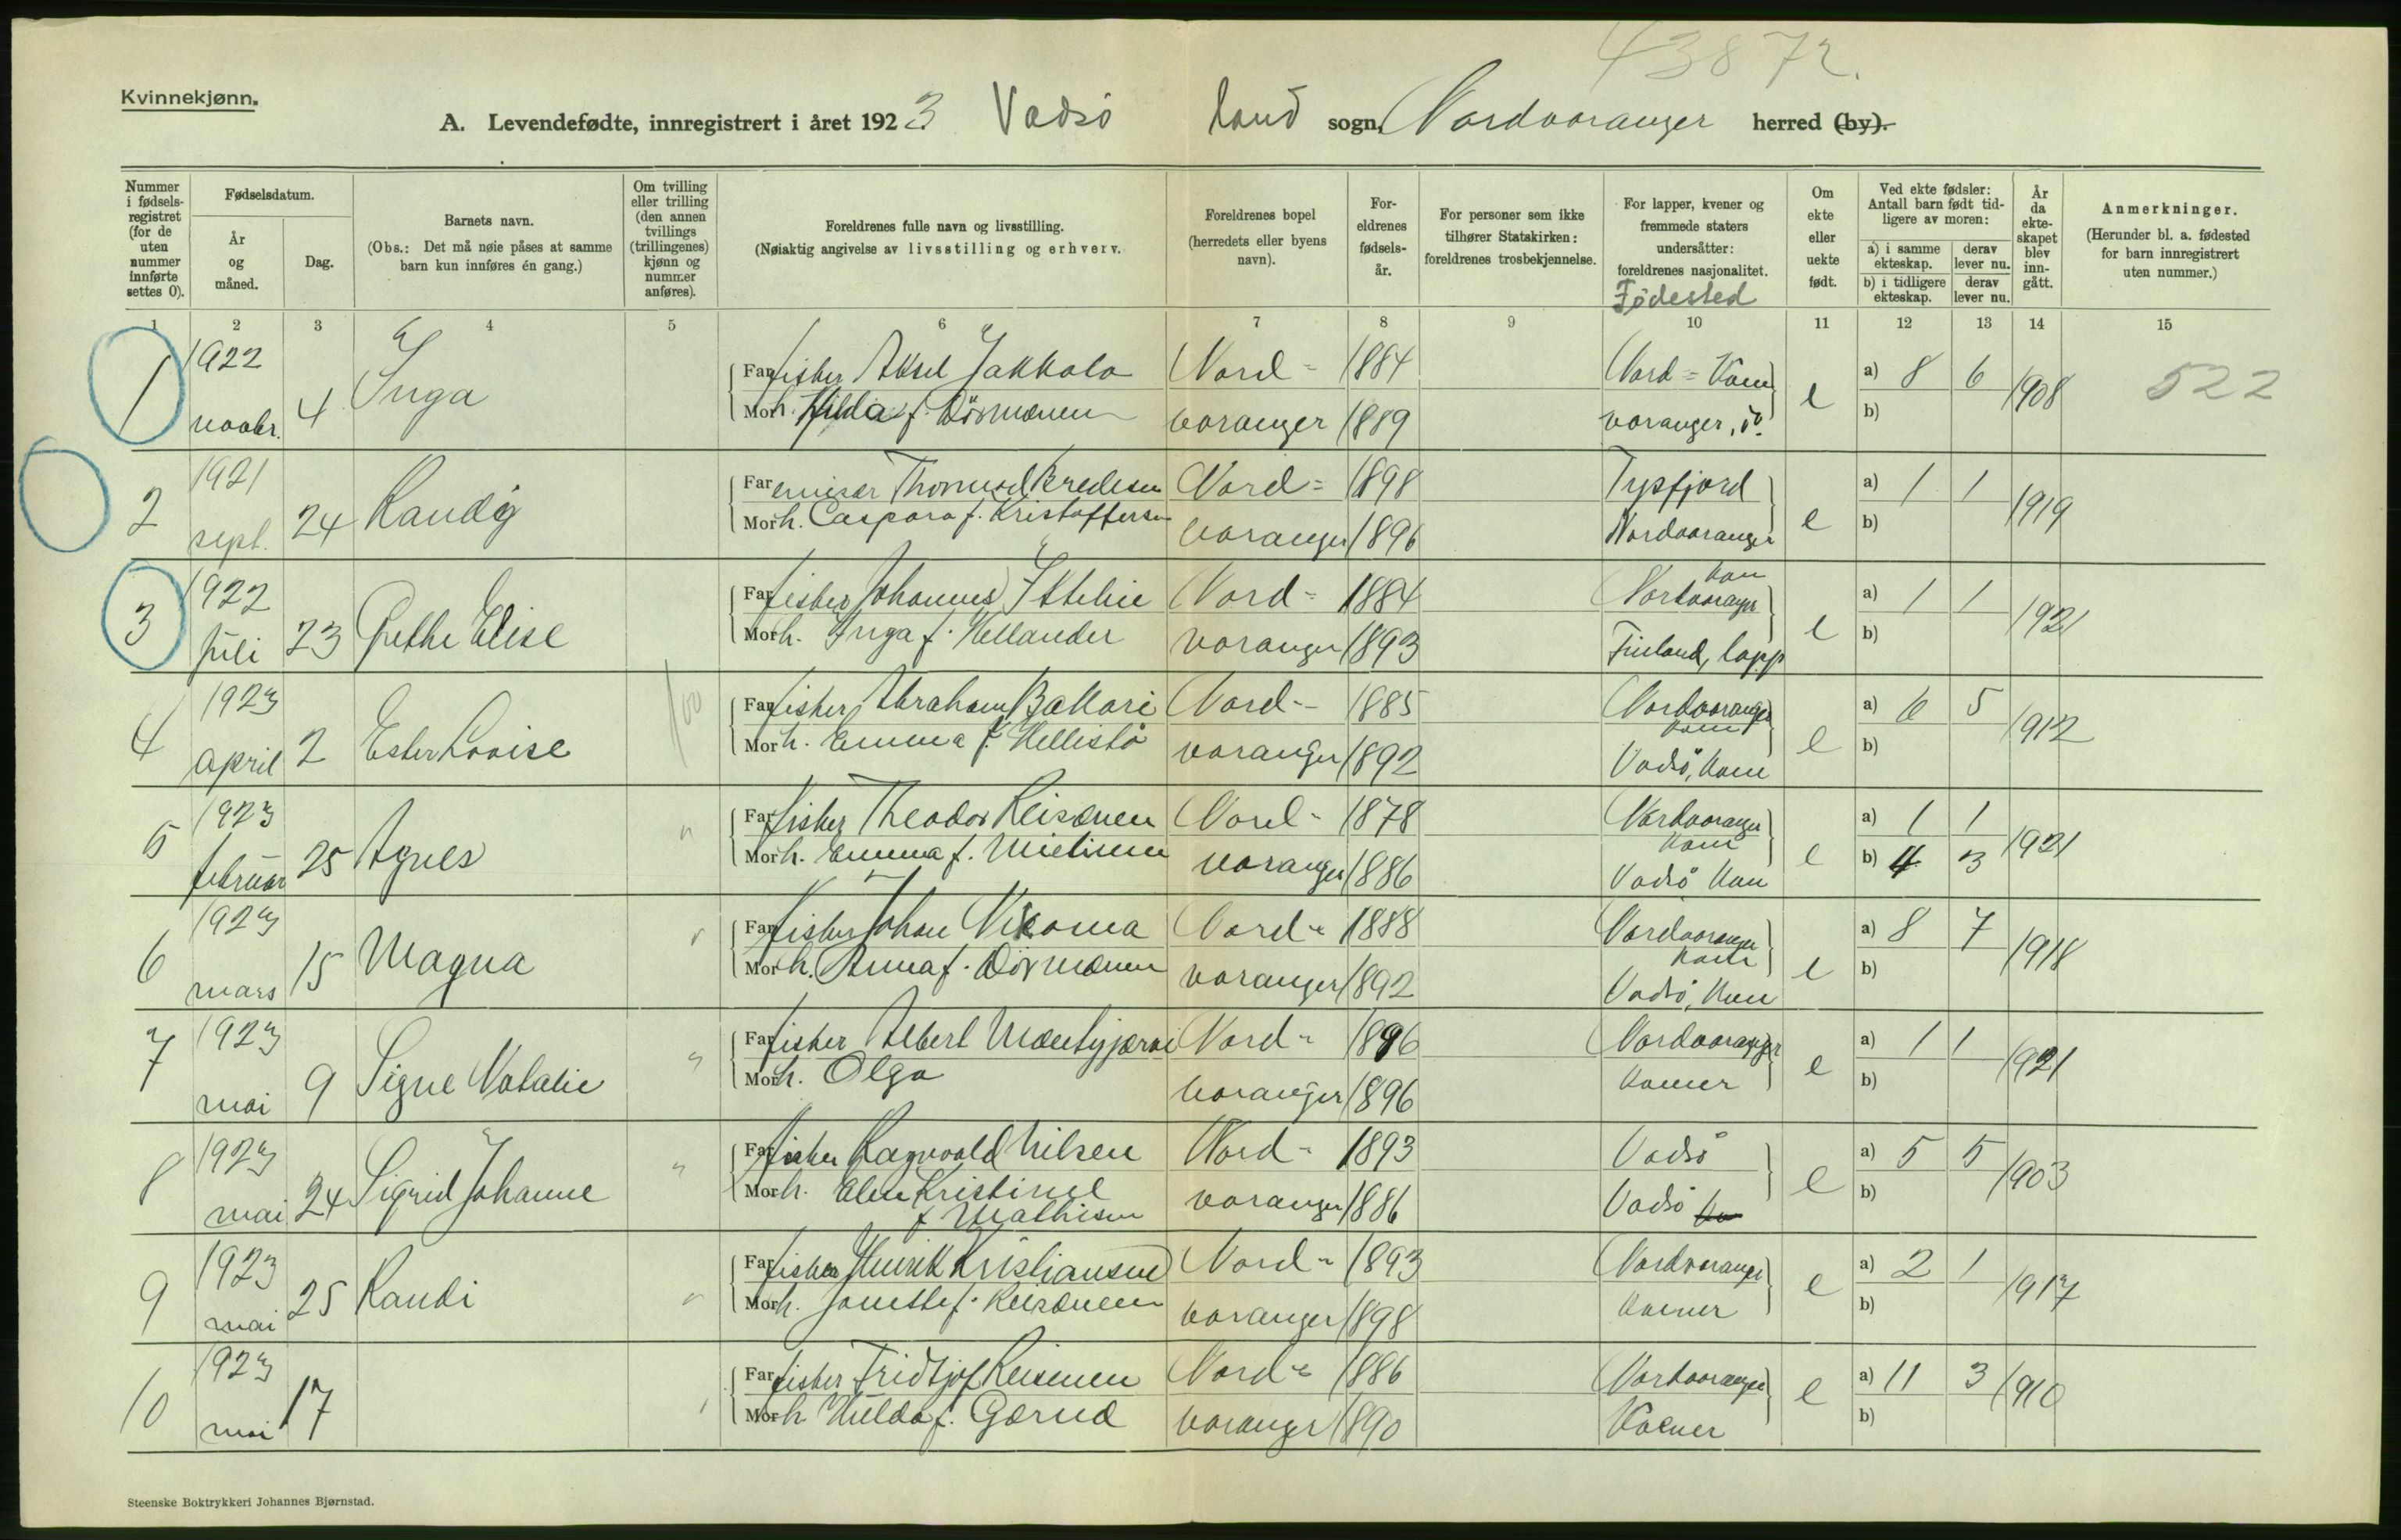 43872.
Kvinnekjønn.
A. Levendefødte, innregistrert i året 1923 Vadsö land sogn, Nordvaranger herred (by).
Nummer i fødsels-registret (for de uten nummer innførte settes 0).
Fødselsdatum.
År og måned.
Dag.
Barnets navn.
(Obs.: Det må nøie påses at samme barn kun innføres én gang.)
Om tvilling eller trilling (den annen tvillings (trillingenes) kjønn og nummer anføres).
Foreldrenes fulle navn og livsstilling.
(Nøiaktig angivelse av livsstilling og erhverv.
Foreldrenes bopel (herredets eller byens navn).
For-eldrenes fødsels-år.
For personer som ikke tilhører Statskirken: foreldrenes trosbekjennelse.
For lapper, kvener og fremmede staters undersåtter: foreldrenes nasjonalitet.
Födested
Om ekte eller uekte født.
Ved ekte fødsler: Antall barn født tid-ligere av moren:
a) i samme ekteskap. derav lever nu.
b) i tidligere ekteskap. derav lever nu.
År da ekte-skapet blev inn-gått.
Anmerkninger.
(Herunder bl. a. fødested for barn innregistrert uten nummer.)
1 2 3 4 5 6 7 8 9 10 11 12 13 14 15
1 1922 novbr. 4 Inga
Far fisker Aksel Jakkola Nord- 1884 Nord- Kven
Mor h. Hilda f. varanger 1889 varanger, do.
e a) 8 6 b) 1908 522
2 1921 sept. 24 Randig
Far Thormod Bredesen Nord- 1898 Tysfjord
Mor h. Caspara f. Kristoffersen varanger 1896 Nordvaranger
e a) 1 1 b) 1919
3 1922 juli 23 Grethe Elise
Far fisker Johannes Nord- 1884 Nordvaranger kven
Mor h. Inga f. Hellander varanger 1893 Finland, lapp
e a) 1 1 b) 1921
4 1923 april 2 Ester Lovise
Far fisker Abraham Ballari Nord- 1885 Nordvaranger kven
Mor h. Emma f. Hellistö varanger 1892 Vadsö, kven
e a) 6 5 b) 1912
5 1923 februar 25 Agnes "
Far fisker Theodor Reisænen Nord- 1878 Nordvaranger kven
Mor h. Emma f. varanger 1886 Vadsö kven
e a) 1 1 b) 4 3 1921
6 1923 mars 15 Magna "
Far fisker Johan Nord- 1888 Nordvaranger kven
Mor h. Anna f. varanger 1892 Vadsö, kven
e a) 8 7 b) 1918
7 1923 mai 9 Signe Natalie "
Far fisker Albert Mæntyjærvi Nord- 1896 Nordvaranger
Mor h. Olga varanger 1896 kvener
e a) 1 1 b) 1921
8 1923 mai 24 Sigrid Johanne "
Far fisker Ragnvald Nilsen Nord- 1893 Vadsö
Mor h. Elen Kristine f. Mathisen varanger 1886 Vadsö
e a) 5 5 b) 1903
9 1923 mai 25 Randi "
Far fisker Henrik Kristiansen Nord- 1893 Nordvaranger
Mor h. Janette f. Reisænen varanger 1898 kvener
e a) 2 1 b) 1917
10 1923 mai 17
Far fisker Fridtjof Reisænen Nord- 1886 Nordvaranger
Mor h. Hulda f. varanger 1890 Kvener
e a) 11 3 b) 1910
Steenske Boktrykkeri Johannes Bjørnstad.